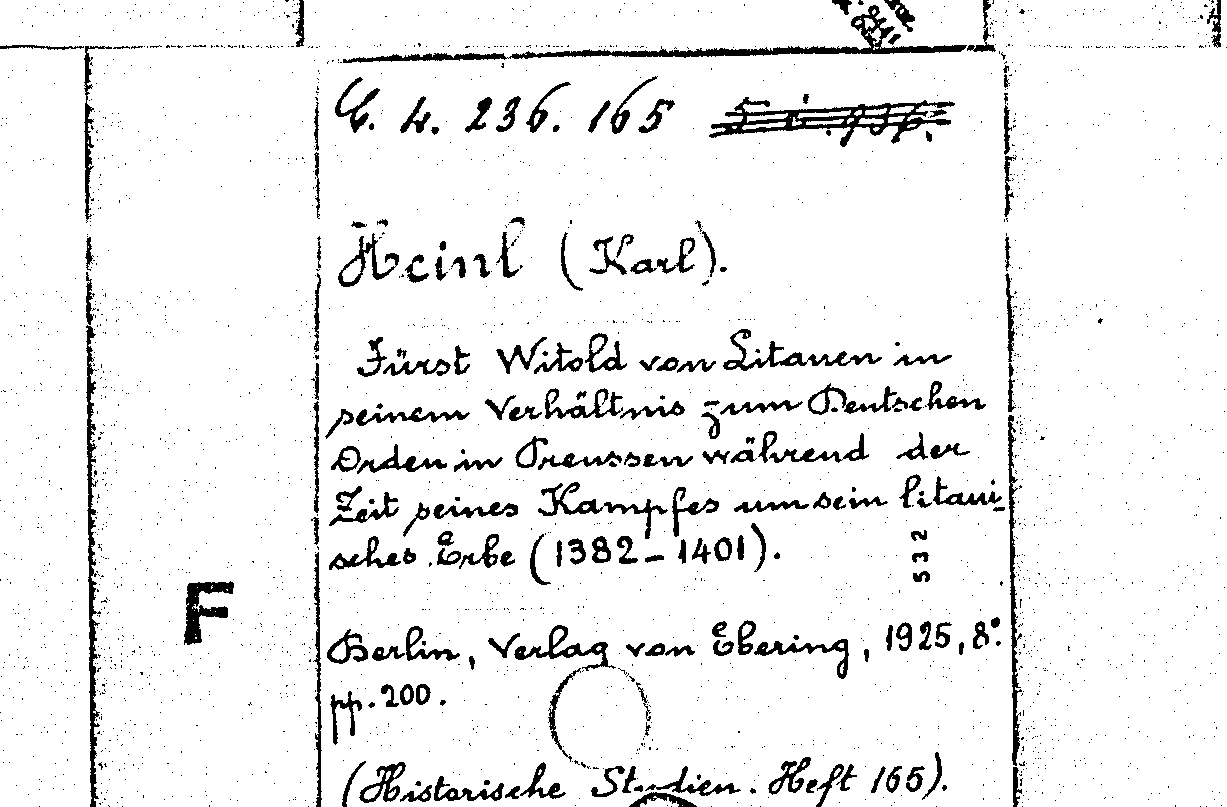 C. 4. 236. 165
Heinl (Karl).
Fürst Witold von Litauen in
seinem Verhältnis zum Deutschen
Orden in Preussen während der
Zeit seines Kampfes um sein litaui-
sches Erbe (1382-1401).
532
F
Berlin, Verlag von Ebering, 1925, 8°.
pp. 200.
(Historische Studien. Heft 165).